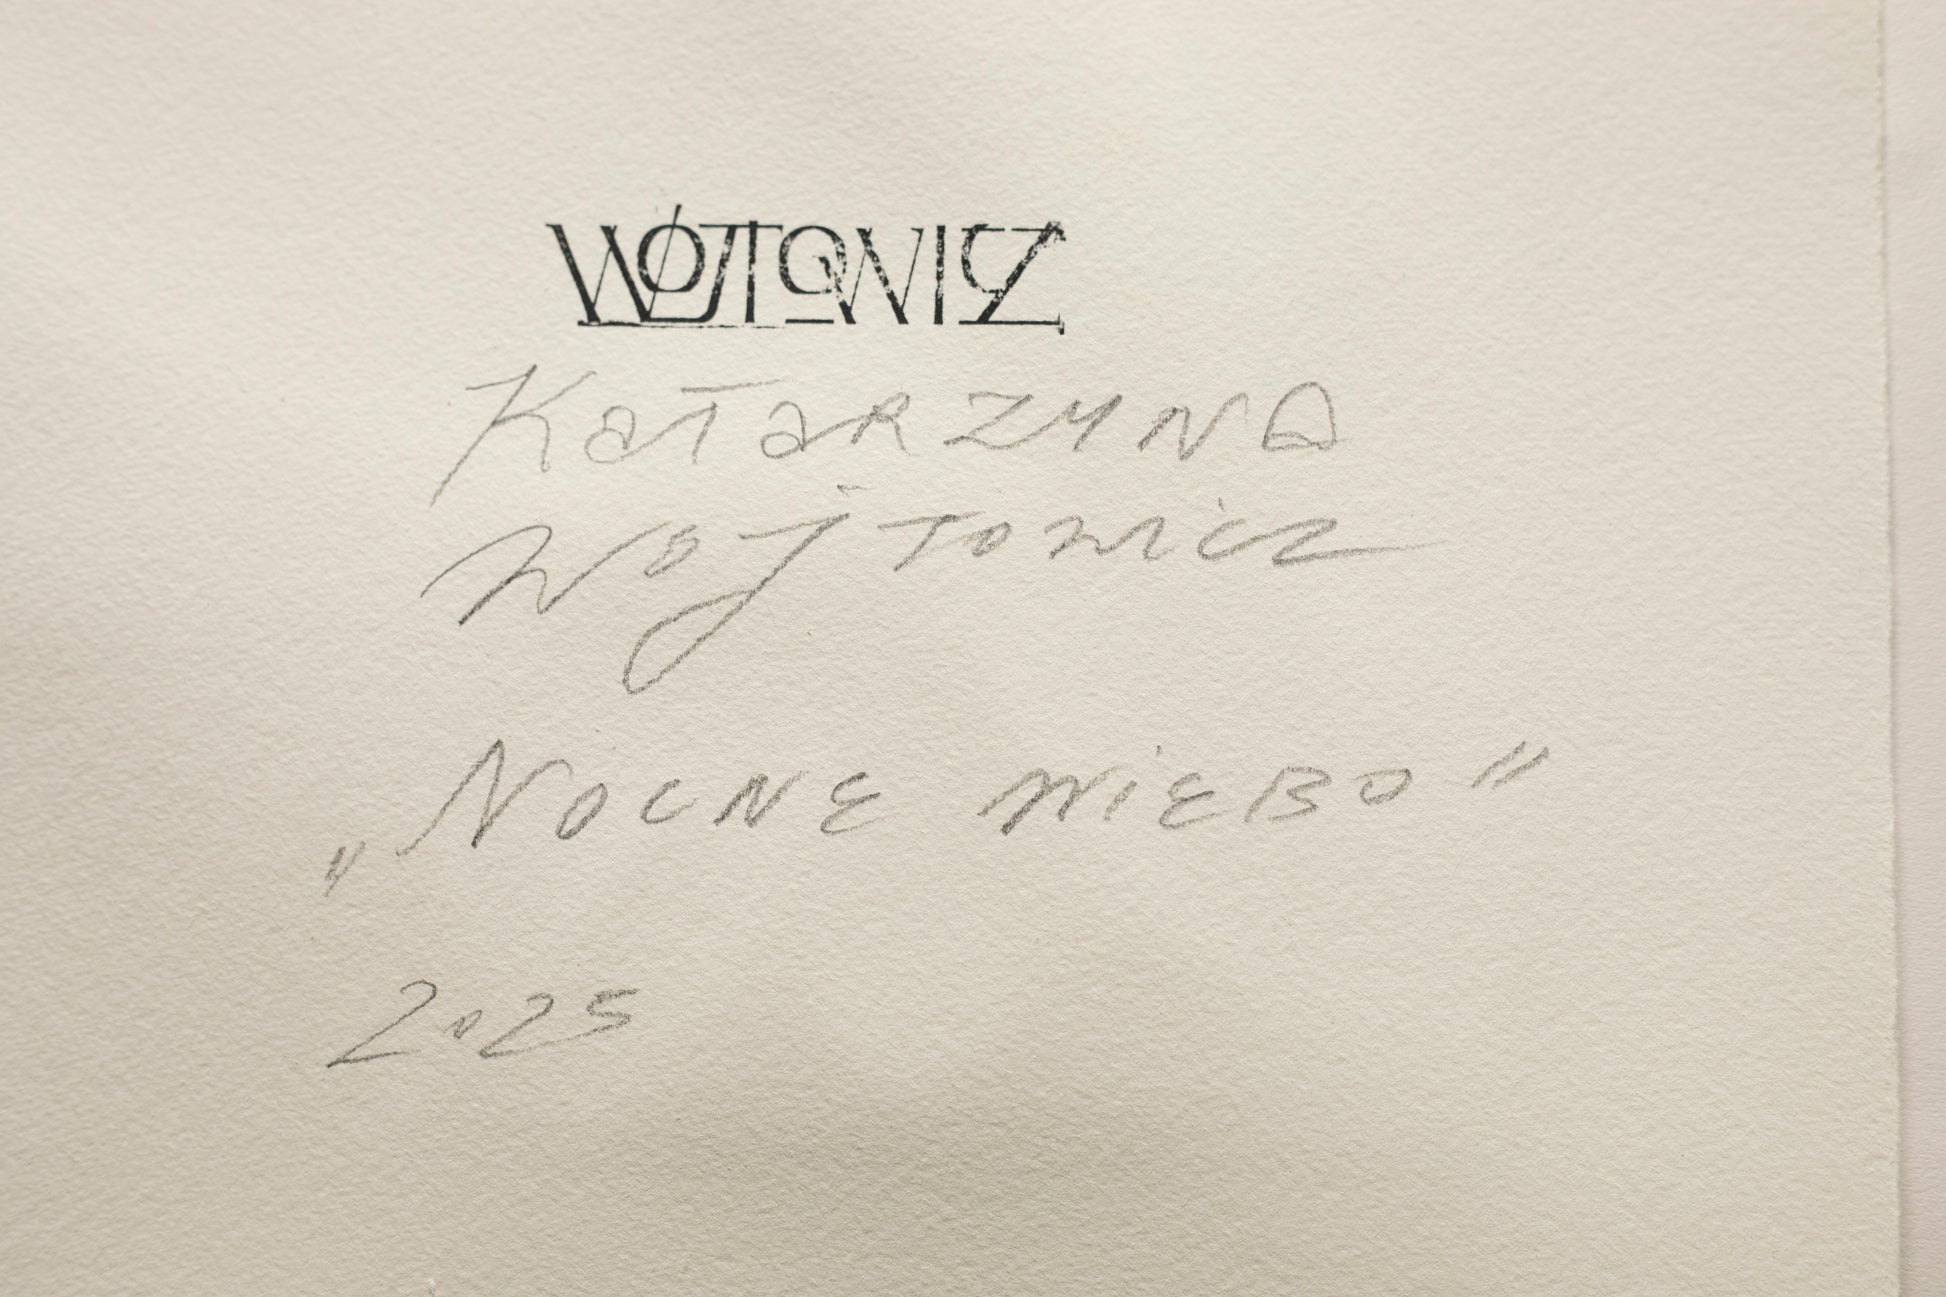 WÓJTOWICZ
KATARZYNA
WÓJTOWICZ
„NOCNE NIEBO"
2025